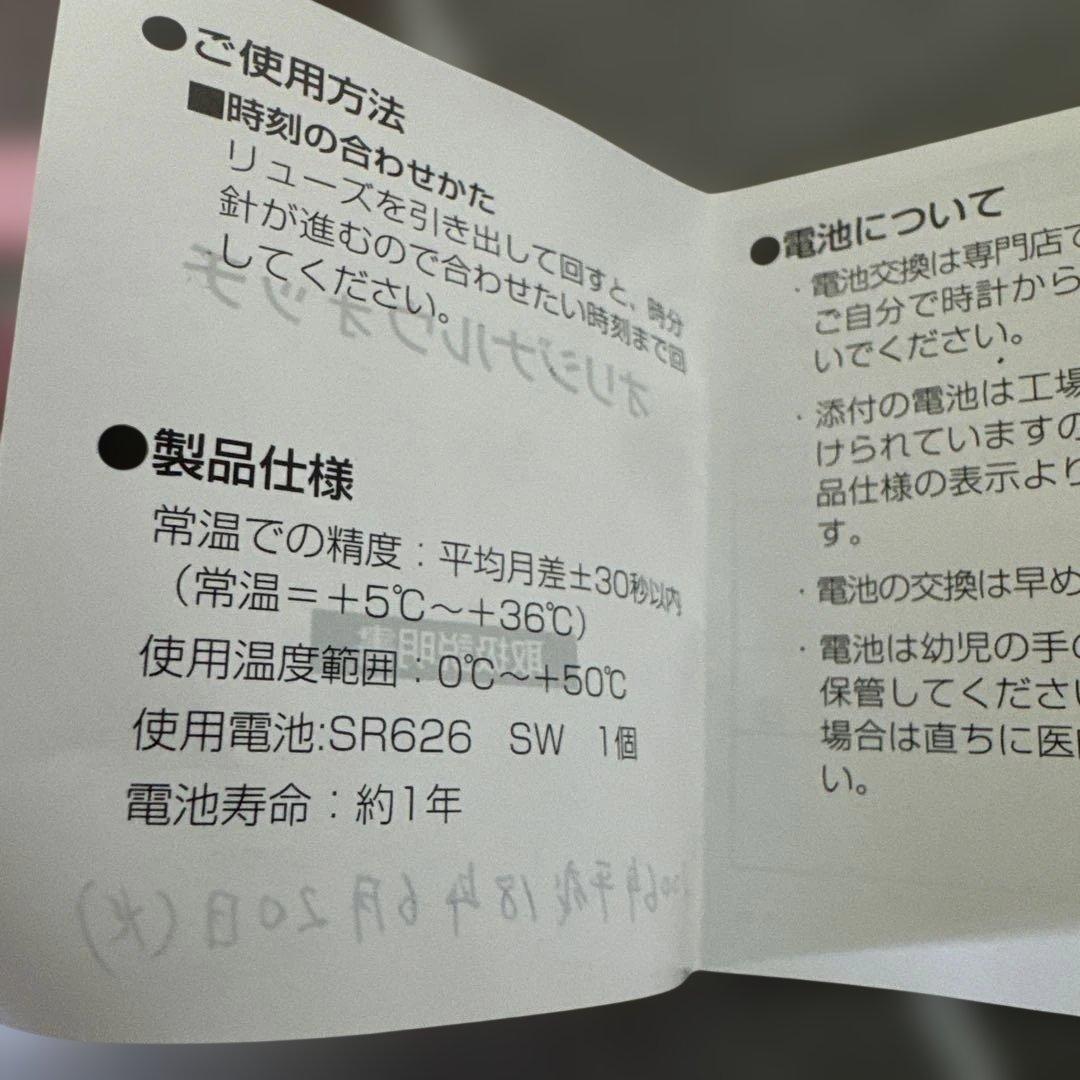 ●ご使用方法
■時刻の合わせかた
リューズを引き出して回すと、時分
針が進むので合わせたい時刻まで回
してください。
オリジナルウォッチ
●製品仕様
常温での精度：平均月差±30秒以内
（常温＝＋5℃～＋36℃）
取扱説明書
使用温度範囲：0℃～＋50℃
使用電池:SR626 SW 1個
電池寿命：約1年
2006年平成18年6月20日(火)
●電池について
・電池交換は専門店で
ご自分で時計から
いでください。
・添付の電池は工場
けられていますの
品仕様の表示より
す。
・電池の交換は早め
・電池は幼児の手の
保管してください
場合は直ちに医
い。